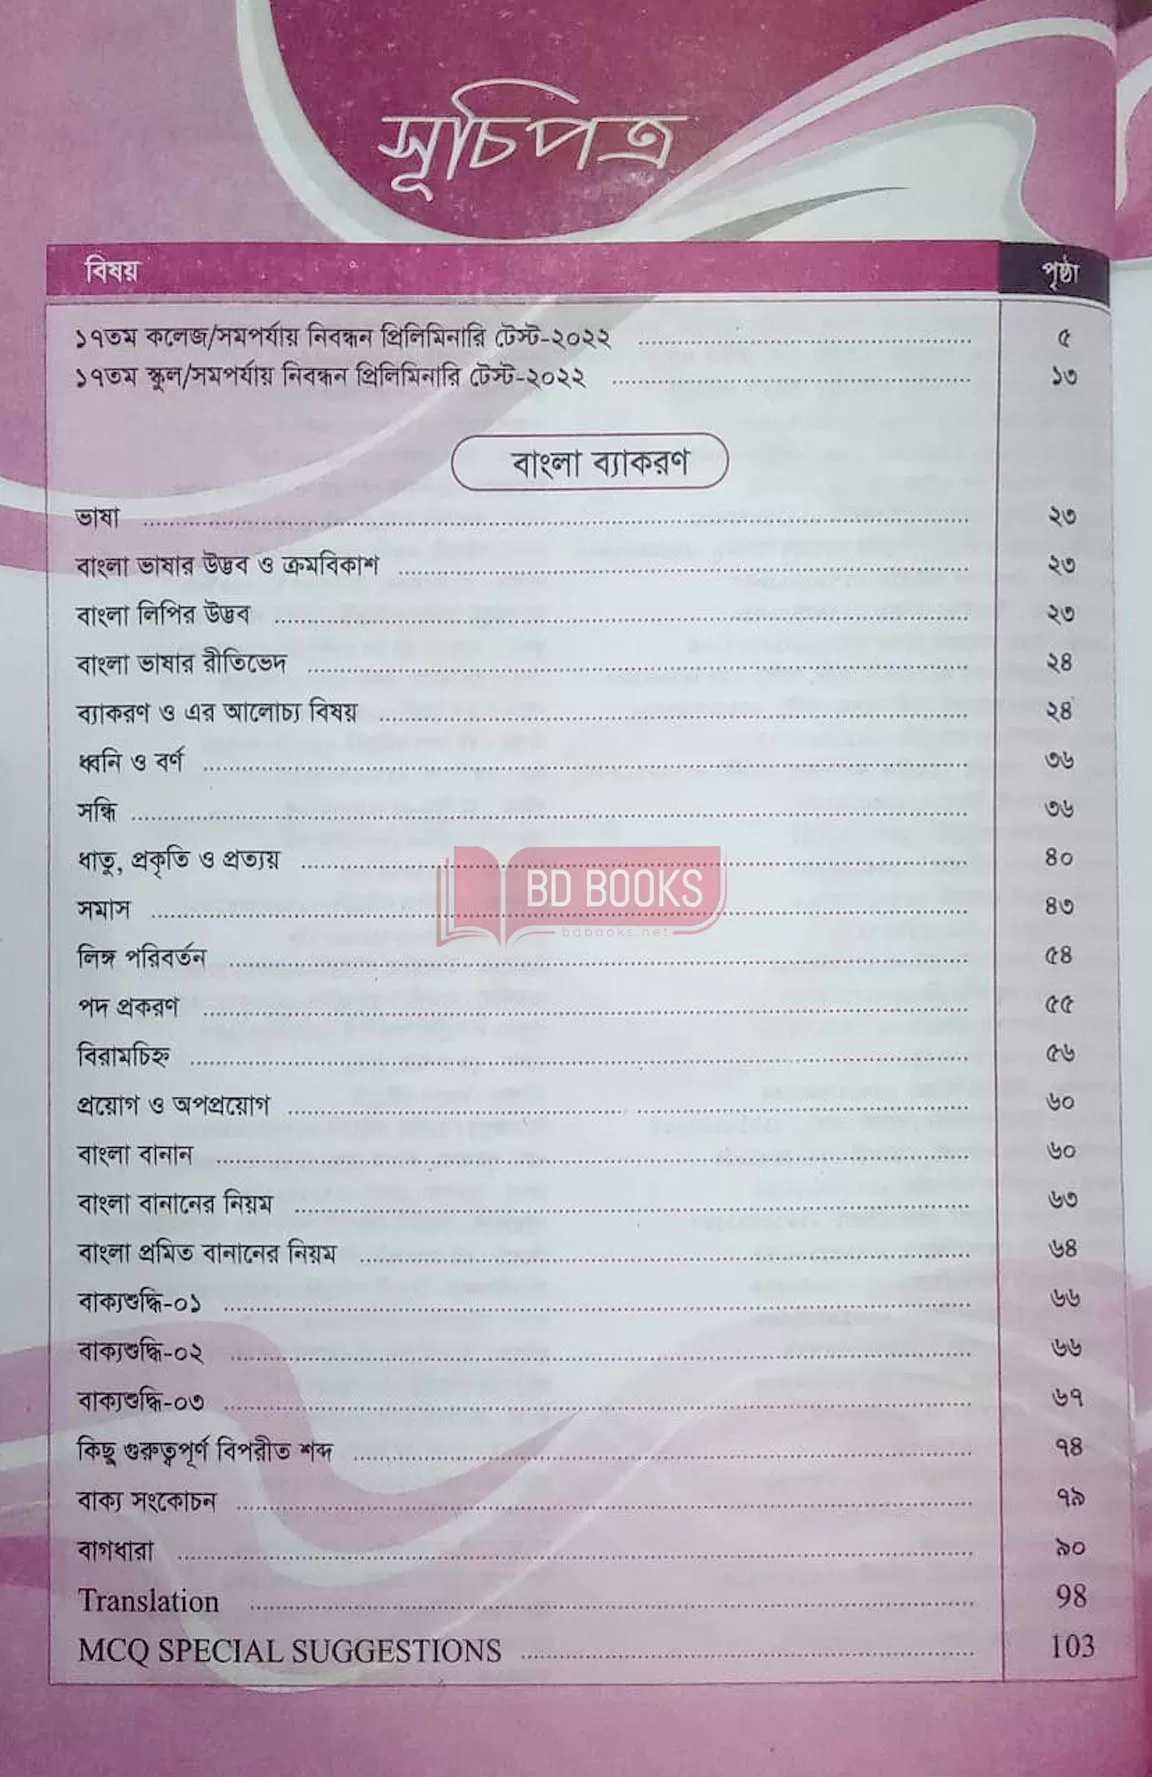 সূচিপত্র
বিষয় পৃষ্ঠা
১৭তম কলেজ/সমপর্যায় নিবন্ধন প্রিলিমিনারি টেস্ট-২০২২ ৫
১৭তম স্কুল/সমপর্যায় নিবন্ধন প্রিলিমিনারি টেস্ট-২০২২ ১৩
বাংলা ব্যাকরণ
ভাষা ২৩
বাংলা ভাষার উদ্ভব ও ক্রমবিকাশ ২৩
বাংলা লিপির উদ্ভব ২৩
বাংলা ভাষার রীতিভেদ ২৪
ব্যাকরণ ও এর আলোচ্য বিষয় ২৪
ধ্বনি ও বর্ণ ৩৬
সন্ধি ৩৬
ধাতু, প্রকৃতি ও প্রত্যয় ৪০
BD BOOKS
সমাস ৪৩
bdbooks.net
লিঙ্গ পরিবর্তন ৫৪
পদ প্রকরণ ৫৫
বিরামচিহ্ন ৫৬
প্রয়োগ ও অপপ্রয়োগ ৬০
বাংলা বানান ৬০
বাংলা বানানের নিয়ম ৬৩
বাংলা প্রমিত বানানের নিয়ম ৬৪
বাক্যশুদ্ধি-০১ ৬৬
বাক্যশুদ্ধি-০২ ৬৬
বাক্যশুদ্ধি-০৩ ৬৭
কিছু গুরুত্বপূর্ণ বিপরীত শব্দ ৭৪
বাক্য সংকোচন ৭৯
বাগধারা ৯০
Translation 98
MCQ SPECIAL SUGGESTIONS 103